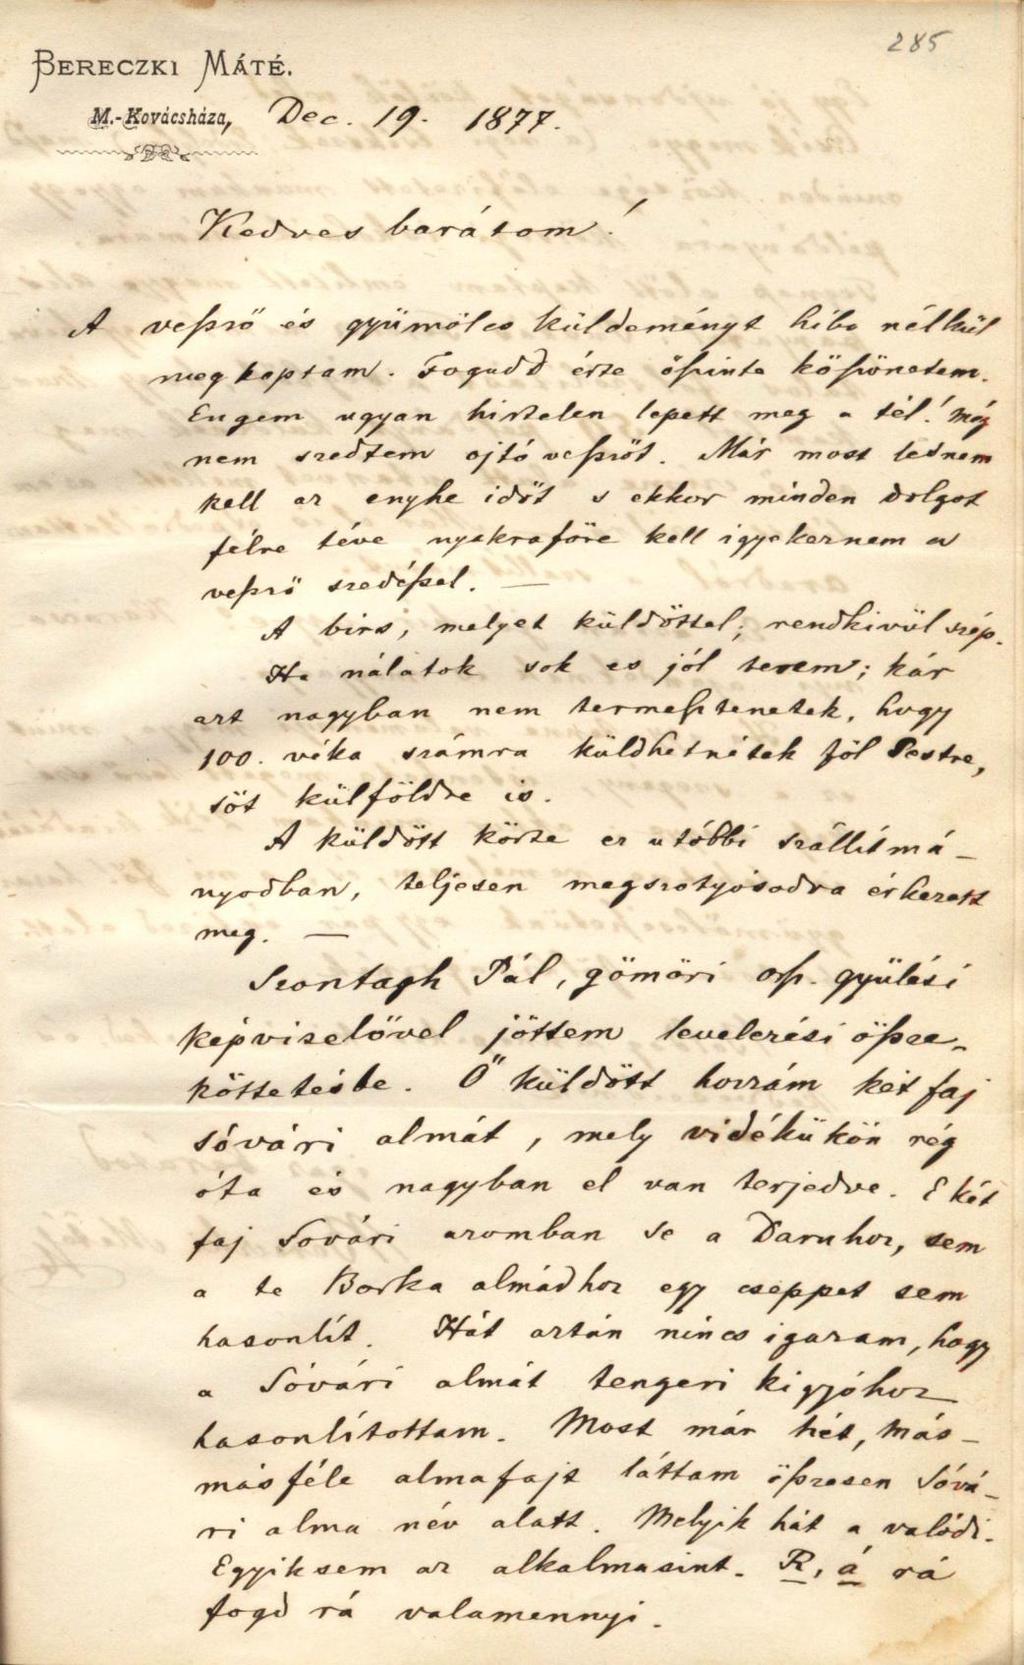 285
BERECZKI MÁTÉ.
M.-Kovácsháza, Dec. 19. 1877.
Kedves barátom!
A veszsző és gyümölcs küldeményt hiba nélkül
megkaptam. Fogadd érte őszinte köszönetem.
Engem ugyan hirtelen lepett meg a tél! Még
nem szedtem ojtóveszszőt. Már most lesnem
kell az enyhe időt s ekkor minden dolgot
félre téve nyakrafőre kell igyekeznem a
veszsző szedéssel. —
A birs, melyet küldöttél; rendkivül szép.
Ha nálatok sok es jól terem; kár
azt nagyban nem termesztenetek, hogy
100. véka számra küldhetnétek föl Pestre,
sőt külföldre is.
A küldött körte ez utóbbi szállítmá-
nyodban, teljesen megszotyósodva érkezett
meg. —
Szontagh Pál, gömöri orsz. gyülési
képviselővel jöttem levelezési öszsze-
köttetésbe. Ő küldött hozzám két faj
sóvári almát, mely vidékükön rég
óta és nagyban el van terjedve. E két
faj Sovári azomban se a Daruhoz, sem
a te Borka almádhoz egy cseppet sem
hasonlít. Hát aztán nincs igazam, hogy
a Sóvári almát tengeri kigyóhoz
hasonlítottam. Most már hét, más-
másféle almafajt láttam öszszesen Sóvá-
ri alma név alatt. Melyik hát a valódi.
Egyiksem az alkalmasint. R, á rá
fogd rá valamennyi.